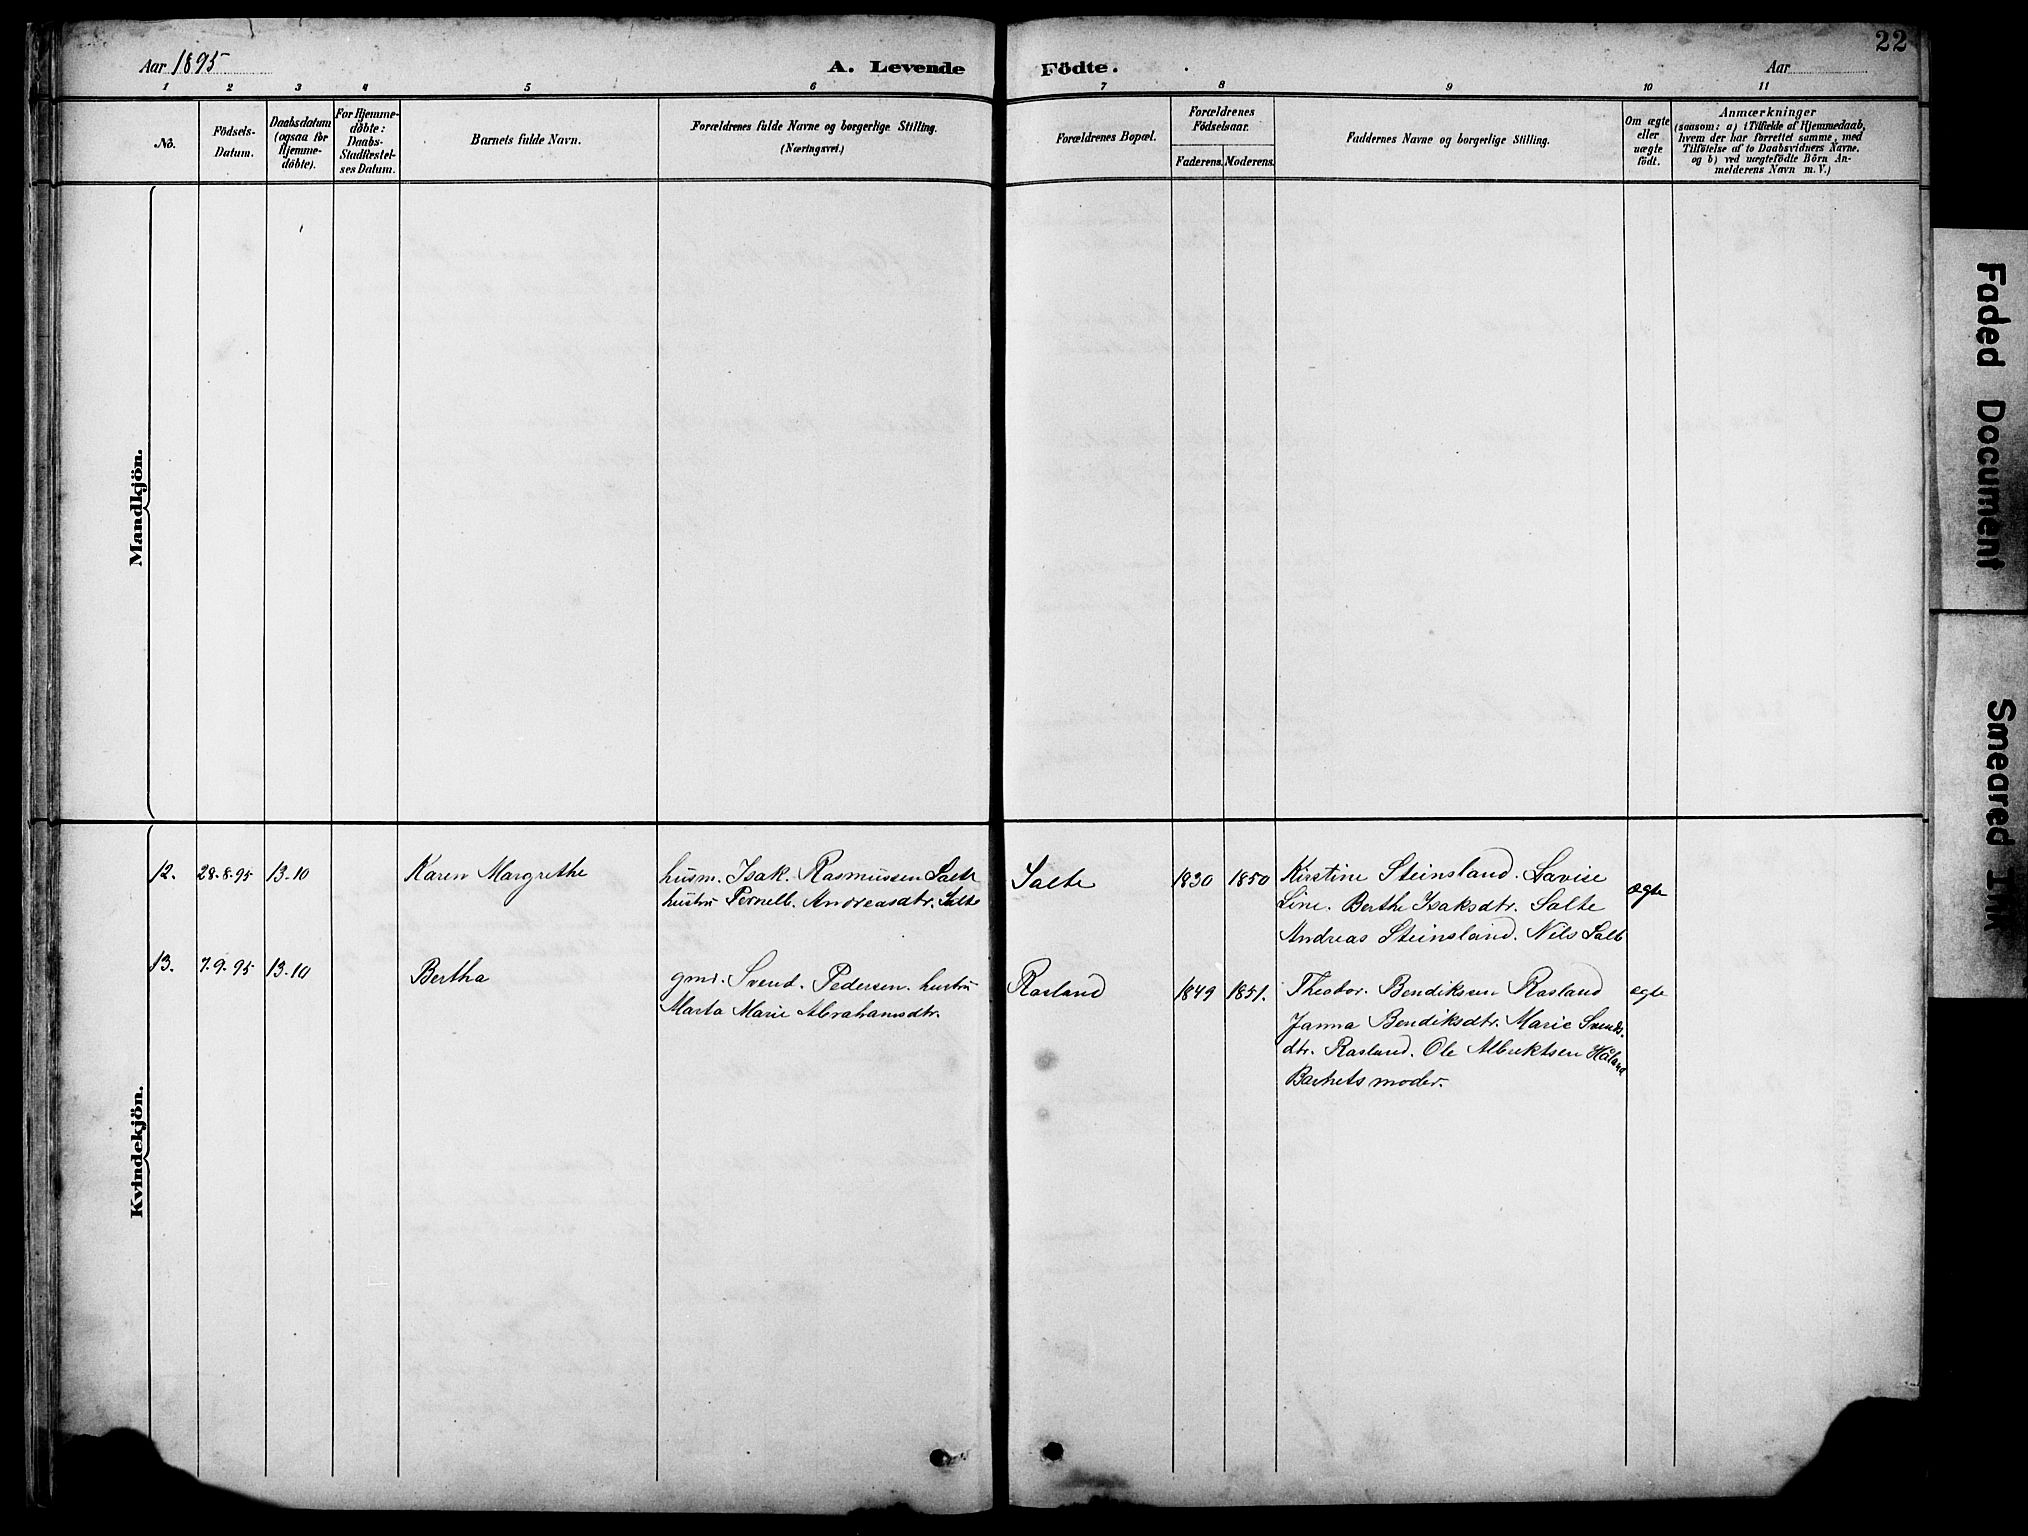 22
Aar 1895
A. Levende Födte.
Aar
1 2 3 4 5 6 7 8 9 10 11
No.
Födsels-
Datum.
Daabsdatum
(ogsaa for
Hjemme-
döbte).
For Hjemme-
döbte:
Daabs-
Stadfæstel-
ses Datum.
Barnets fulde Navn.
Forældrenes fulde Navne og borgerlige Stilling.
(Næringsvei.)
Forældrenes Bopæl.
Forældrenes
Födselsaar.
Faderens. Moderens.
Faddernes Navne og borgerlige Stilling.
Om ægte
eller
uægte
födt.
Anmærkninger
(saasom: a) i Tilfælde af Hjemmedaab,
hvem der har forrettet samme, med
Tilföielse af to Daabsvidners Navne,
og b) ved uægtefödte Börn An-
melderens Navn m. V.)
Mandkjön.
Kvindekjön.
12. 28-8-95 13-10 Karen Margrethe
husm. Isak. Rasmussen Salte
hustru Pernell. Andreasdtr. Salte
Salte 1830 1850
Kirstine Steinsland. Lavise
Line. Berthe Isaksdtr. Salte
Andreas Steinsland. Nils Salte
ægte
13. 7-9-95 13-10 Bertha
gmd. Svend. Pedersen. hustru
Marta Marie Abrahamsdtr.
Rasland 1849 1851.
Theodor. Bendiksen Rasland
Janna Bendiksdtr. Marie Svends-
dtr. Rasland. Ole Albrektsen Håland
Barnets moder.
ægte
Faded Document
Smeared Ink